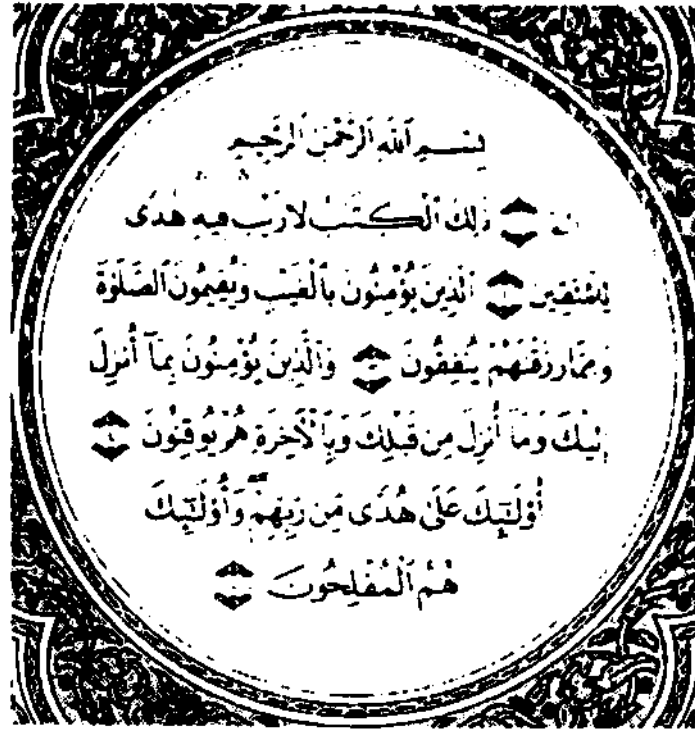 بِسْمِ ٱللَّهِ ٱلرَّحْمَٰنِ ٱلرَّحِيمِ
الٓمٓ ۝ ذَٰلِكَ ٱلْكِتَٰبُ لَا رَيْبَ ۛ فِيهِ ۛ هُدًى
لِّلْمُتَّقِينَ ۝ ٱلَّذِينَ يُؤْمِنُونَ بِٱلْغَيْبِ وَيُقِيمُونَ ٱلصَّلَوٰةَ
وَمِمَّا رَزَقْنَٰهُمْ يُنفِقُونَ ۝ وَٱلَّذِينَ يُؤْمِنُونَ بِمَآ أُنزِلَ
إِلَيْكَ وَمَآ أُنزِلَ مِن قَبْلِكَ وَبِٱلْءَاخِرَةِ هُمْ يُوقِنُونَ ۝
أُو۟لَٰٓئِكَ عَلَىٰ هُدًى مِّن رَّبِّهِمْ ۖ وَأُو۟لَٰٓئِكَ
هُمُ ٱلْمُفْلِحُونَ ۝